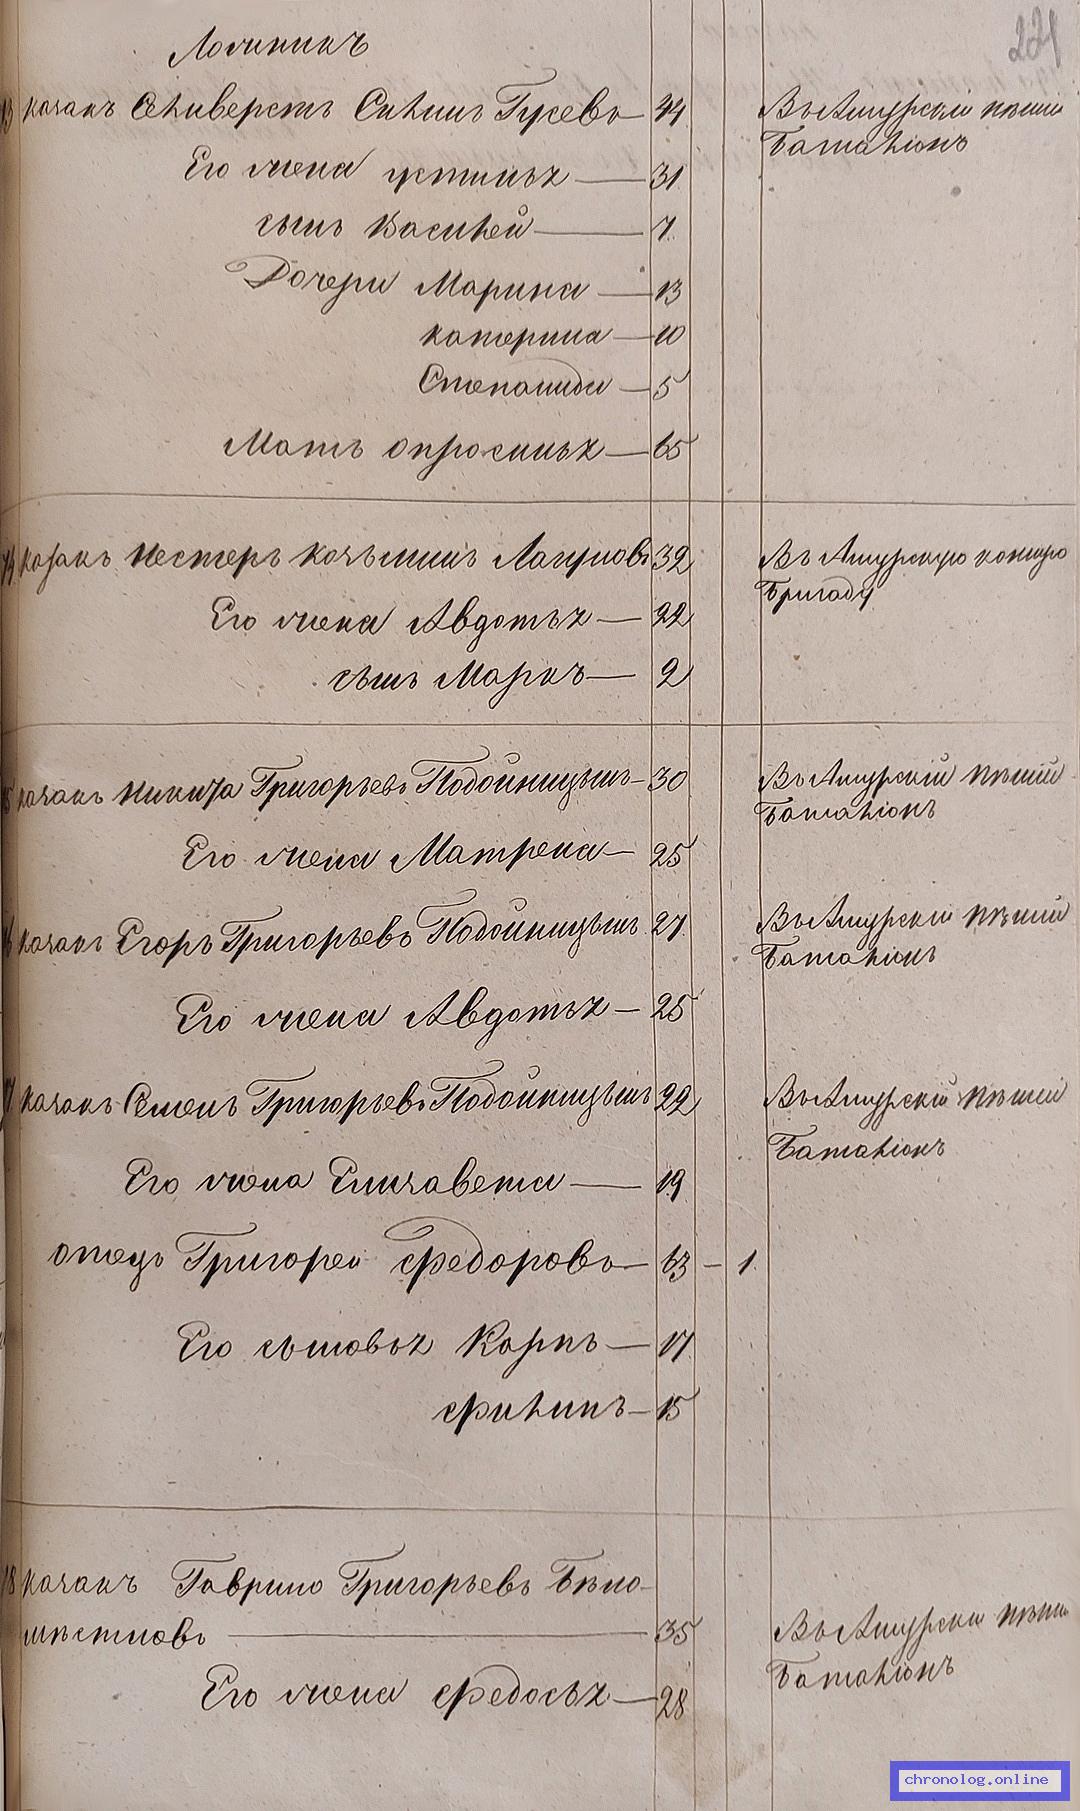 221
13 казакъ Селиверстъ Силинъ Гусевъ — 44 Въ Амурскій пѣшій
Баталіонъ
Его жена устинья — 31
сынъ Василей — 7.
Дочери Марина — 13
катерина — 10
Степанида — 5
Мать опросинья — 65
14 казакъ Нестеръ козьминъ 32 Въ Амурскую конную
Бригаду
Его жена Авдотья — 22
сынъ Маркъ — 2
15 казакъ Никита Григорьевъ Подойницынъ — 30 Въ Амурскій пѣшій
Баталіонъ
Его жена Матрена — 25
16 казакъ Егоръ Григорьевъ Подойницынъ 27. Въ Амурскій пѣшій
Баталіонъ
Его жена Авдотья — 25
17 казакъ Семенъ Григорьевъ Подойницынъ 22 Въ Амурскій пѣшій
Баталіонъ
Его жена Елизавета — 19
отецъ Григорей Федоровъ — 63 — 1.
Его сыновья Карпъ — 17
Филипъ — 15
18 казакъ Гаврило Григорьевъ Бѣло-
шѣстновъ — 35 Въ Амурскій пѣшій
Баталіонъ
Его жена Федосья — 28
chronolog.online